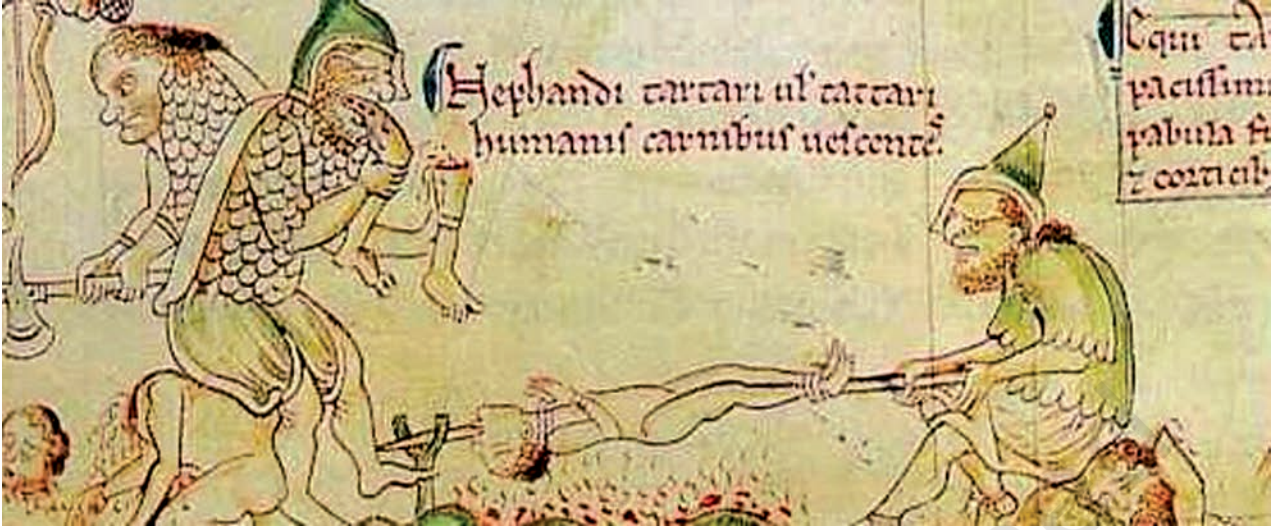 Nephandi tartari ul' tattari
humanis carnibus uescentes
Equi ta
pacissimi
pabula
⁊ corticib